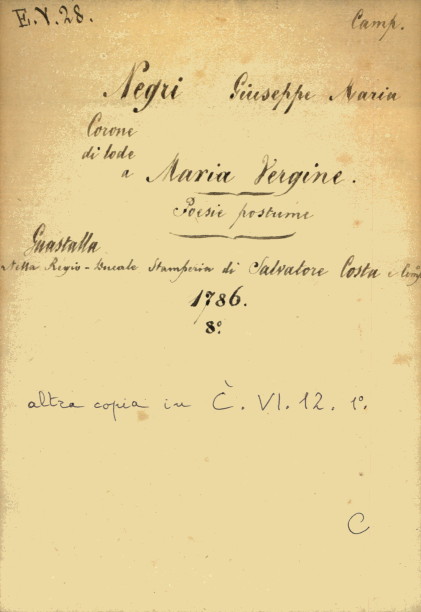 E.V.28. Camp.
Negri Giuseppe Maria
Corone
di lode
a Maria Vergine.
Poesie postume
Guastalla
Nella Regio-Ducale Stamperia di Salvatore Costa e Comp.
1786.
8º.
altra copia in Č. VI. 12. 1º.
C